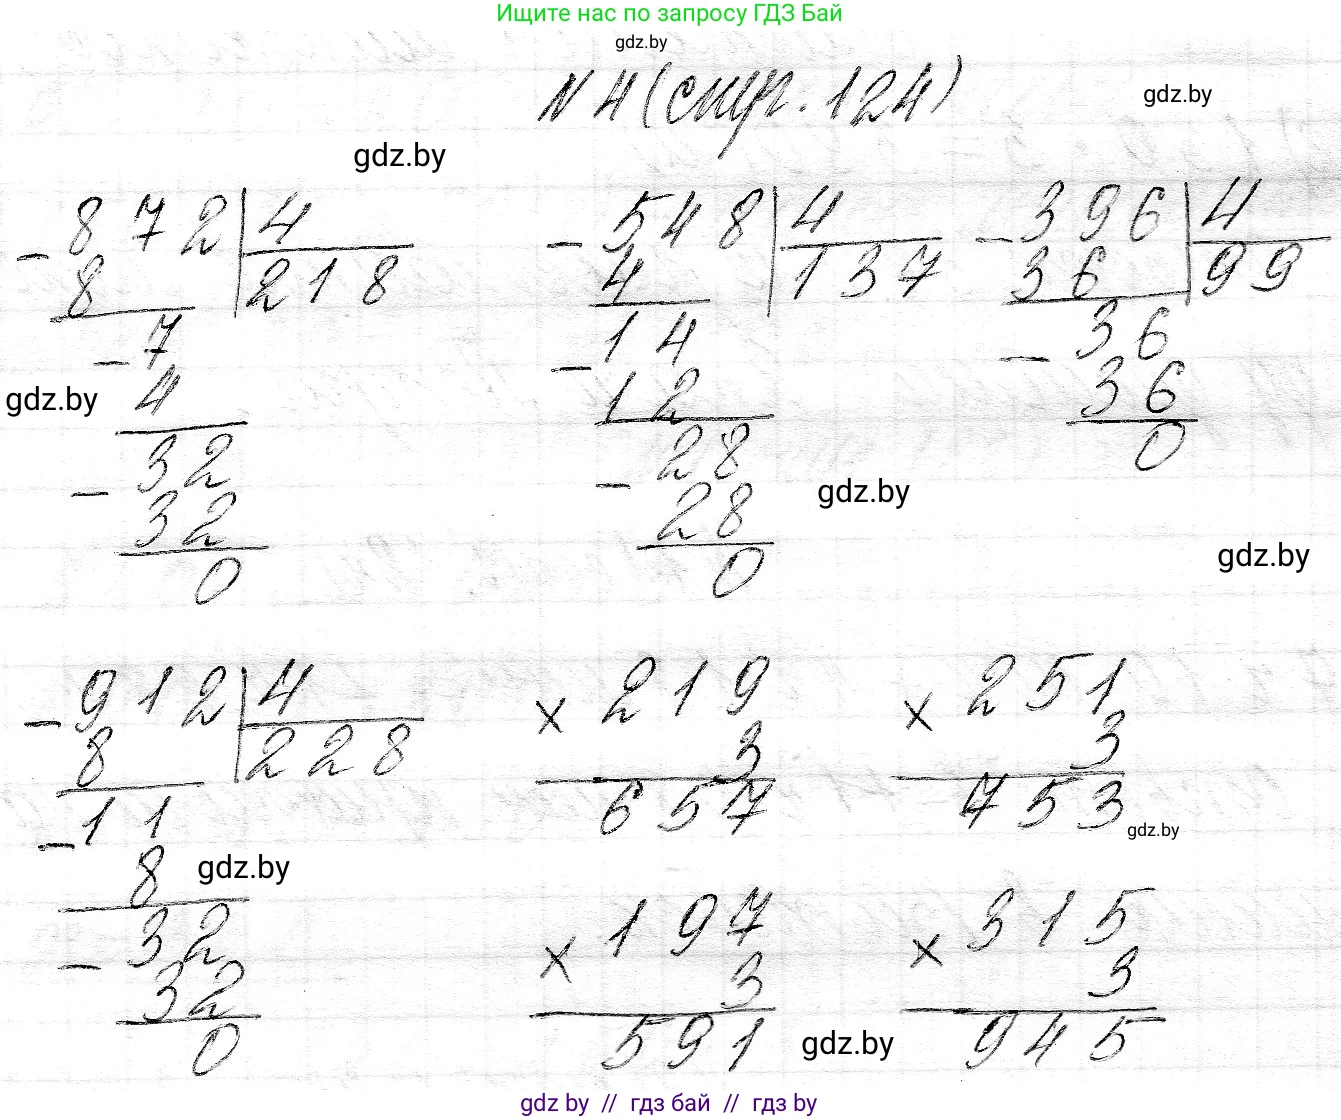 Ищите нас по запросу ГДЗ Бай
gdz.by
N 4 (стр. 124)
gdz.by
gdz.by
- 872 | 4
8 218
- 7
4
- 32
32
0
- 548 | 4
4 137
- 14
12
- 28
28
0
- 396 | 4
36 99
- 36
36
0
gdz.by
gdz.by
gdz.by
- 912 | 4
8 228
- 11
8
- 32
32
0
× 219
3
657
× 251
3
753
gdz.by
gdz.by
× 197
3
591
× 315
3
945
gdz.by
gdz by // гдз бай // гдз by